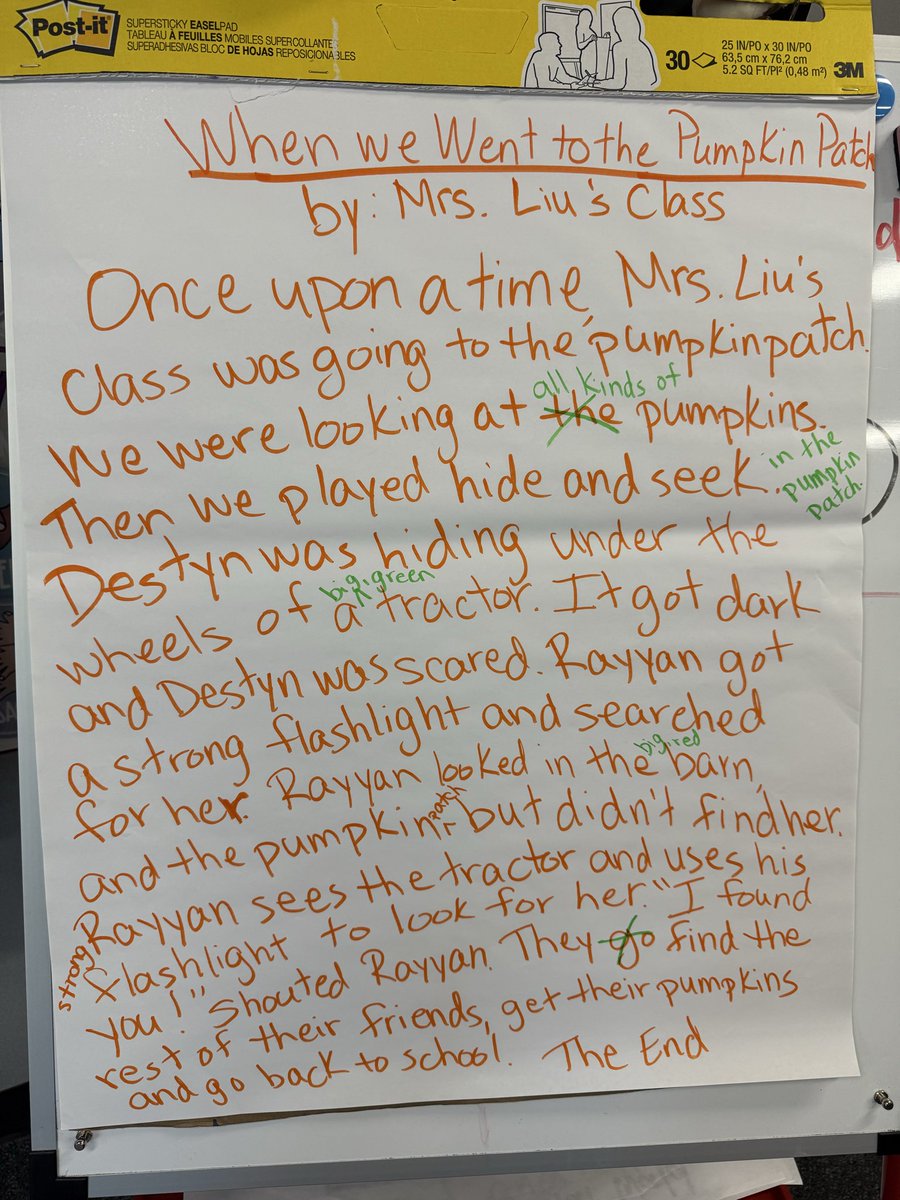 Post-it
SUPERSTICKY EASELPAD
TABLEAU À FEUILLES MOBILES SUPERCOLLANTES
SUPERADHESIVAS BLOC DE HOJAS REPOSICIONABLES
30
25 IN/PO x 30 IN/PO
63,5 cm x 76,2 cm
5.2 SQ FT/PI² (0,48 m²)
3M
When we Went to the Pumpkin Patch
by: Mrs. Liu's Class
Once upon a time, Mrs. Liu's
Class was going to the pumpkin patch.
all kinds of
We were looking at the pumpkins.
Then, we played hide and seek. in the
pumpkin
patch.
Destyn was hiding under the
big, green
wheels of a tractor. It got dark
and Destyn was scared. Rayyan got
a strong flashlight and searched
big, red
for her. Rayyan looked in the barn,
patch
and the pumpkin, but didn't find her.
Rayyan sees the tractor and uses his
strong
flashlight to look for her. "I found
you!" Shouted Rayyan. They go find the
rest of their friends, get their pumpkins
and go back to school. The End